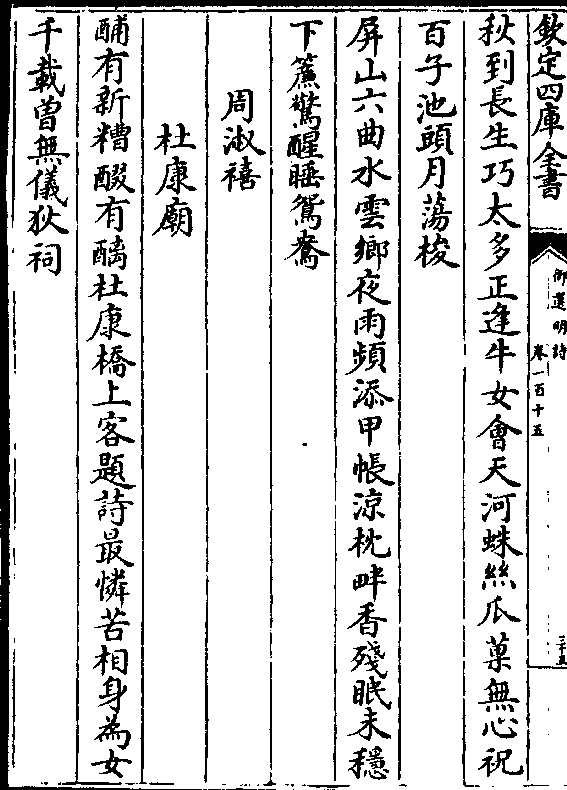 欽定四庫全書
御選明詩
卷一百十五
三十五
秋到長生巧太多正逢牛女會天河蛛絲瓜菓無心祝
百子池頭月蕩梭
屏山六曲水雲鄉夜雨頻添甲帳涼枕畔香殘眠未穩
下簾驚醒睡鴛鴦
周淑禧
杜康廟
酺有新糟醊有醨杜康橋上客題詩最憐苦相身為女
千載曾無儀狄祠